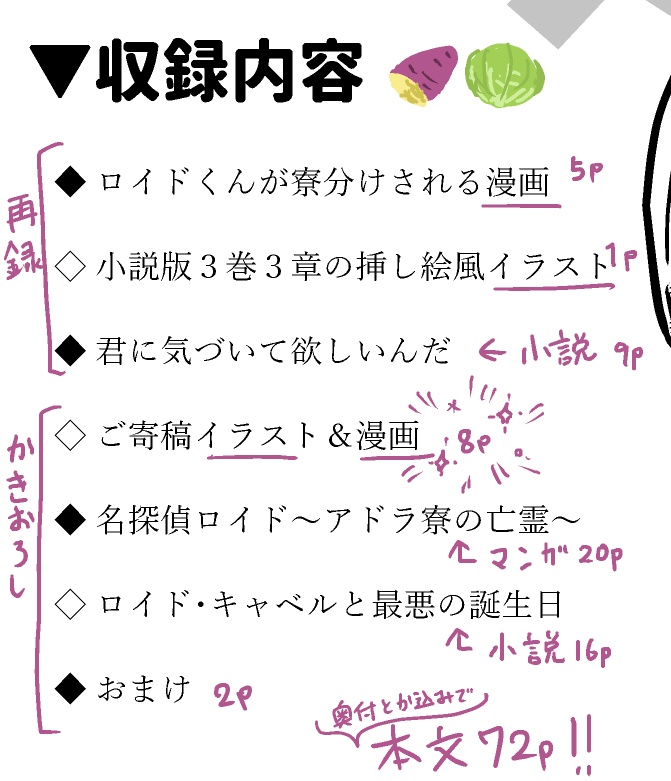 ▼収録内容
再録
◆ ロイドくんが寮分けされる漫画 5p
◇ 小説版3巻3章の挿し絵風イラスト 1p
◆ 君に気づいて欲しいんだ ← 小説 9p
かきおろし
◇ ご寄稿イラスト&漫画 8p
◆ 名探偵ロイド～アドラ寮の亡霊～
↑ マンガ 20p
◇ ロイド・キャベルと最悪の誕生日
↑ 小説 16p
◆ おまけ 2p
奥付とか込みで
本文72p!!